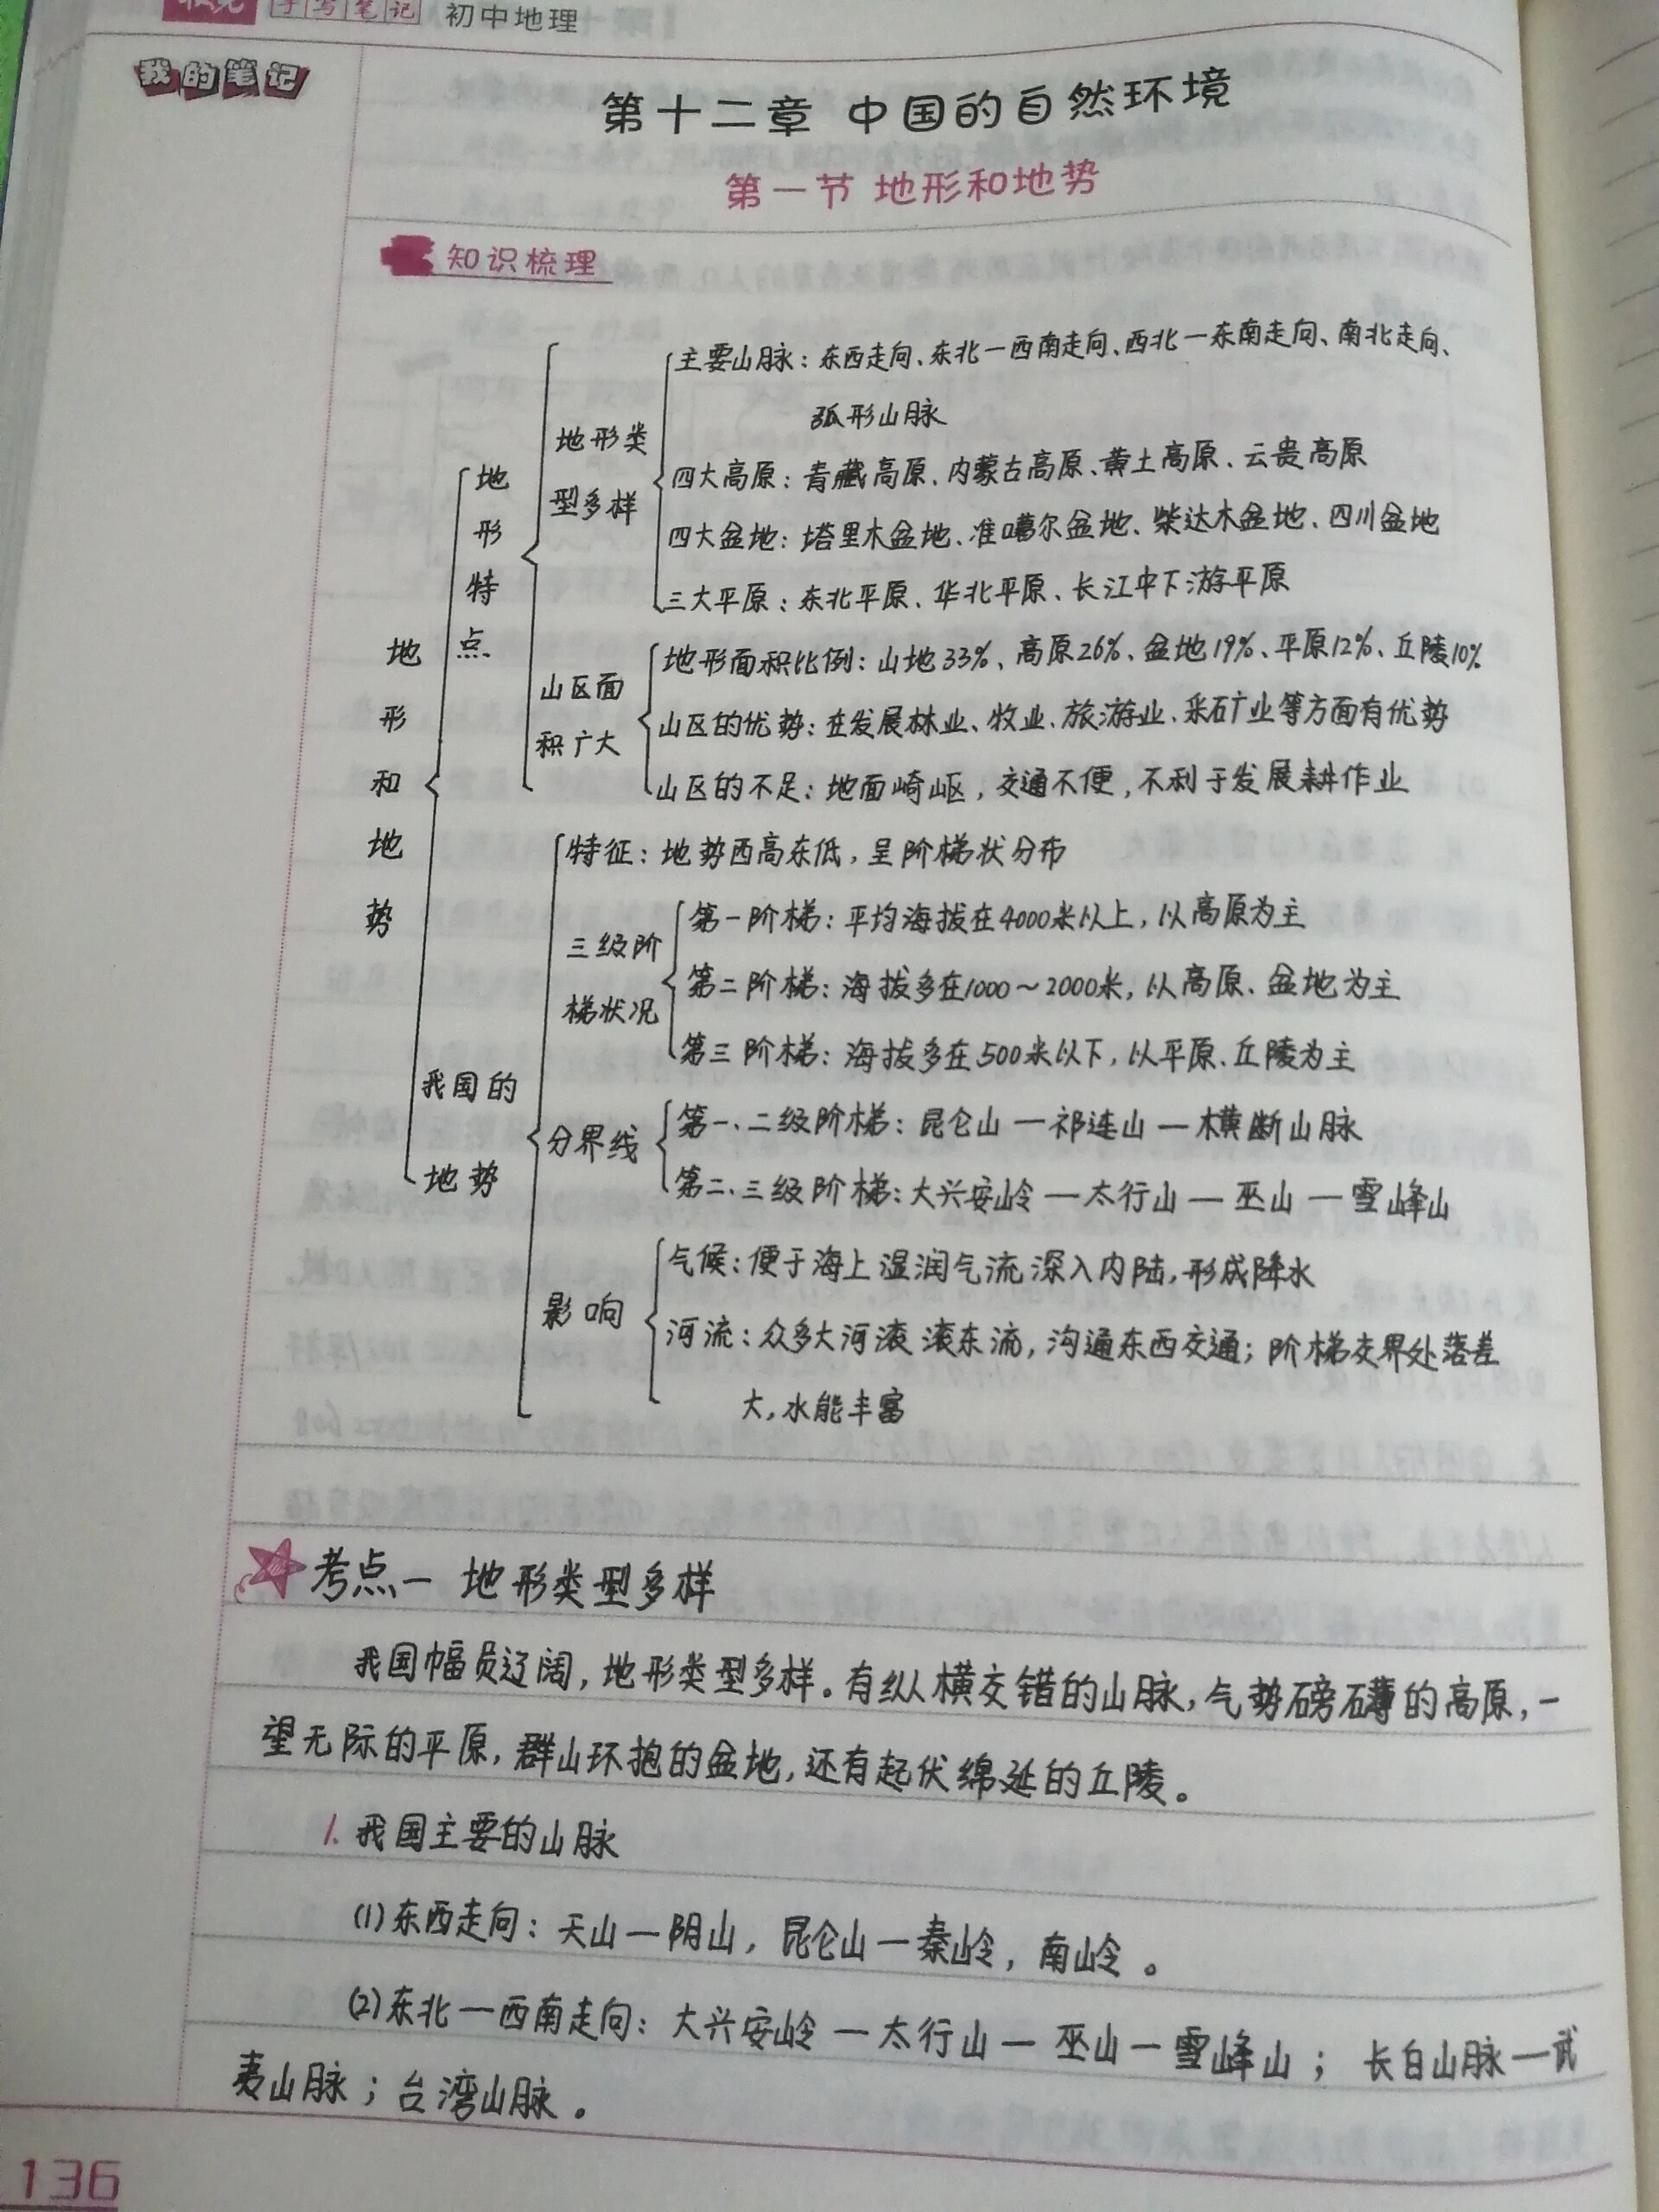 手写笔记 初中地理
我的笔记
第十二章 中国的自然环境
第一节 地形和地势
知识梳理
地形和地势
地形特点
地形类型多样
主要山脉：东西走向、东北—西南走向、西北—东南走向、南北走向、
弧形山脉
四大高原：青藏高原、内蒙古高原、黄土高原、云贵高原
四大盆地：塔里木盆地、准噶尔盆地、柴达木盆地、四川盆地
三大平原：东北平原、华北平原、长江中下游平原
山区面积广大
地形面积比例：山地33%、高原26%、盆地19%、平原12%、丘陵10%
山区的优势：在发展林业、牧业、旅游业、采矿业等方面有优势
山区的不足：地面崎岖，交通不便，不利于发展耕作业
我国的地势
特征：地势西高东低，呈阶梯状分布
三级阶梯状况
第一阶梯：平均海拔在4000米以上，以高原为主
第二阶梯：海拔多在1000～2000米，以高原、盆地为主
第三阶梯：海拔多在500米以下，以平原、丘陵为主
分界线
第一、二级阶梯：昆仑山—祁连山—横断山脉
第二、三级阶梯：大兴安岭—太行山—巫山—雪峰山
影响
气候：便于海上湿润气流深入内陆，形成降水
河流：众多大河滚滚东流，沟通东西交通；阶梯交界处落差
大，水能丰富
考点一 地形类型多样
我国幅员辽阔，地形类型多样。有纵横交错的山脉，气势磅礴的高原，一
望无际的平原，群山环抱的盆地，还有起伏绵延的丘陵。
1.我国主要的山脉
(1)东西走向：天山—阴山，昆仑山—秦岭，南岭。
(2)东北—西南走向：大兴安岭—太行山—巫山—雪峰山；长白山脉—武
夷山脉；台湾山脉。
136